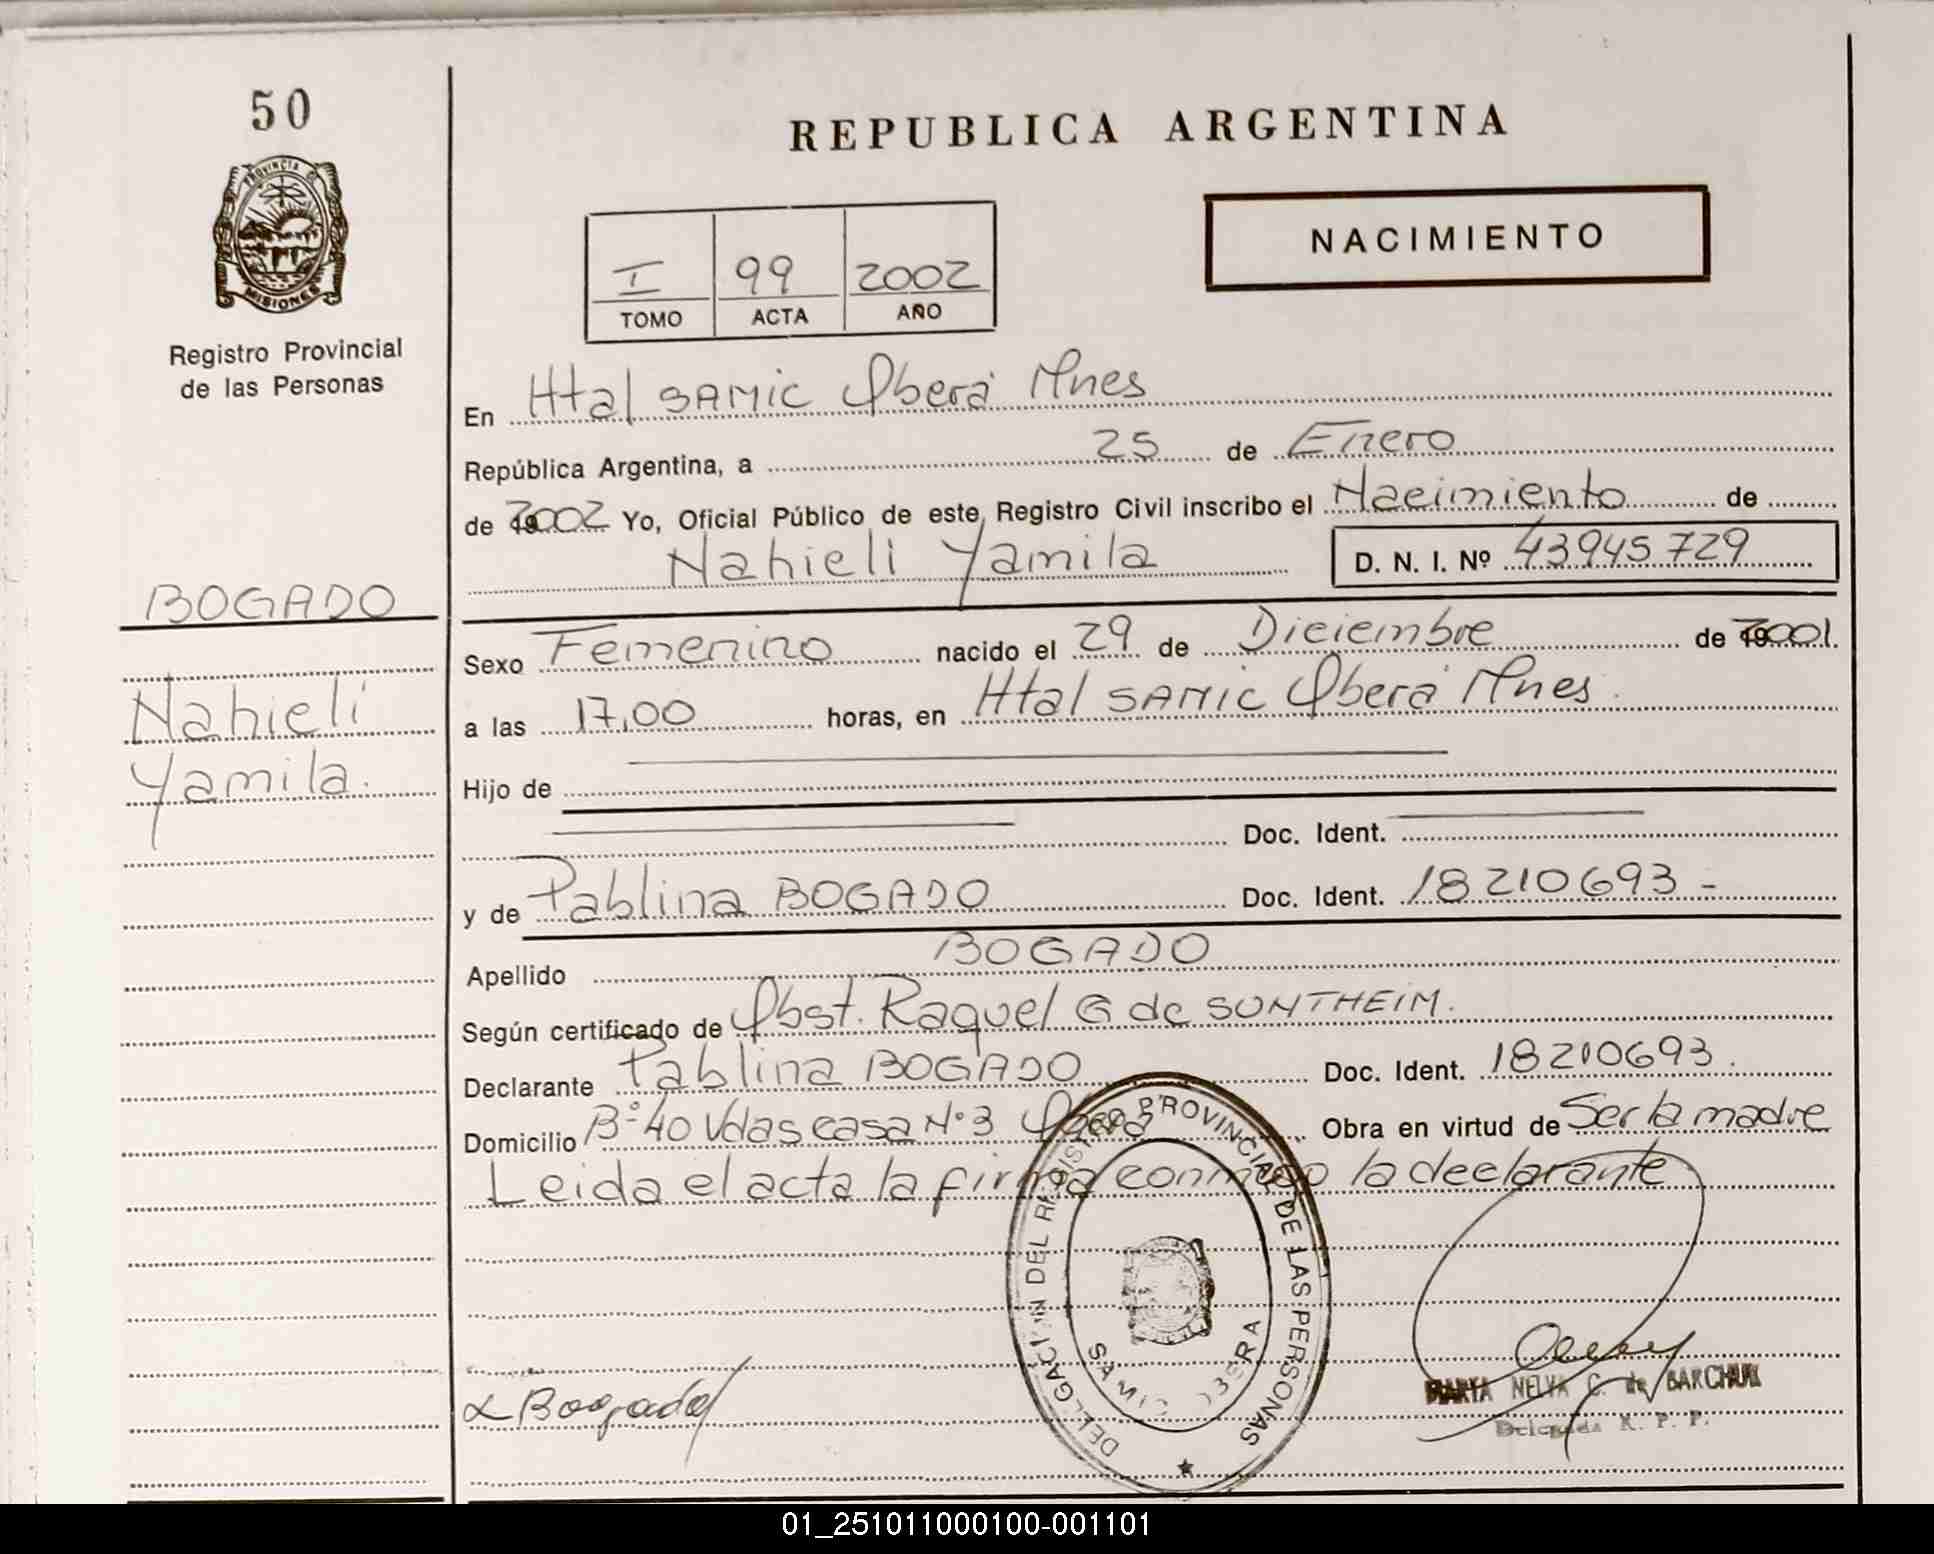 50
PROVINCIA DE
MISIONES
Registro Provincial
de las Personas
BOGADO
Nahieli
Yamila.
REPUBLICA ARGENTINA
NACIMIENTO
I 99 2002
TOMO ACTA AÑO
En Htal SAMIC Oberá Mnes
República Argentina, a 25 de Enero
de 2002 Yo, Oficial Público de este Registro Civil inscribo el Nacimiento de
Nahieli Yamila D. N. I. Nº 43945729
Sexo Femenino nacido el 29 de Diciembre de 2001.
a las 17,00 horas, en Htal SAMIC Oberá Mnes.
Hijo de
Doc. Ident.
y de Pablina BOGADO Doc. Ident. 18210693 -
Apellido BOGADO
Según certificado de Obst. Raquel G de SONTHEIM.
Declarante Pablina BOGADO Doc. Ident. 18210693.
Domicilio Bº 40 Vdas casa Nº 3 Oberá Obra en virtud de Ser la madre
Leida el acta la firma conmigo la declarante
DELEGACION DEL REGISTRO PROVINCIAL DE LAS PERSONAS
SAMIC OBERA
Bogado
MARTA NELVA C. de BARCHUK
Delegada R. P. P.
01_251011000100-001101